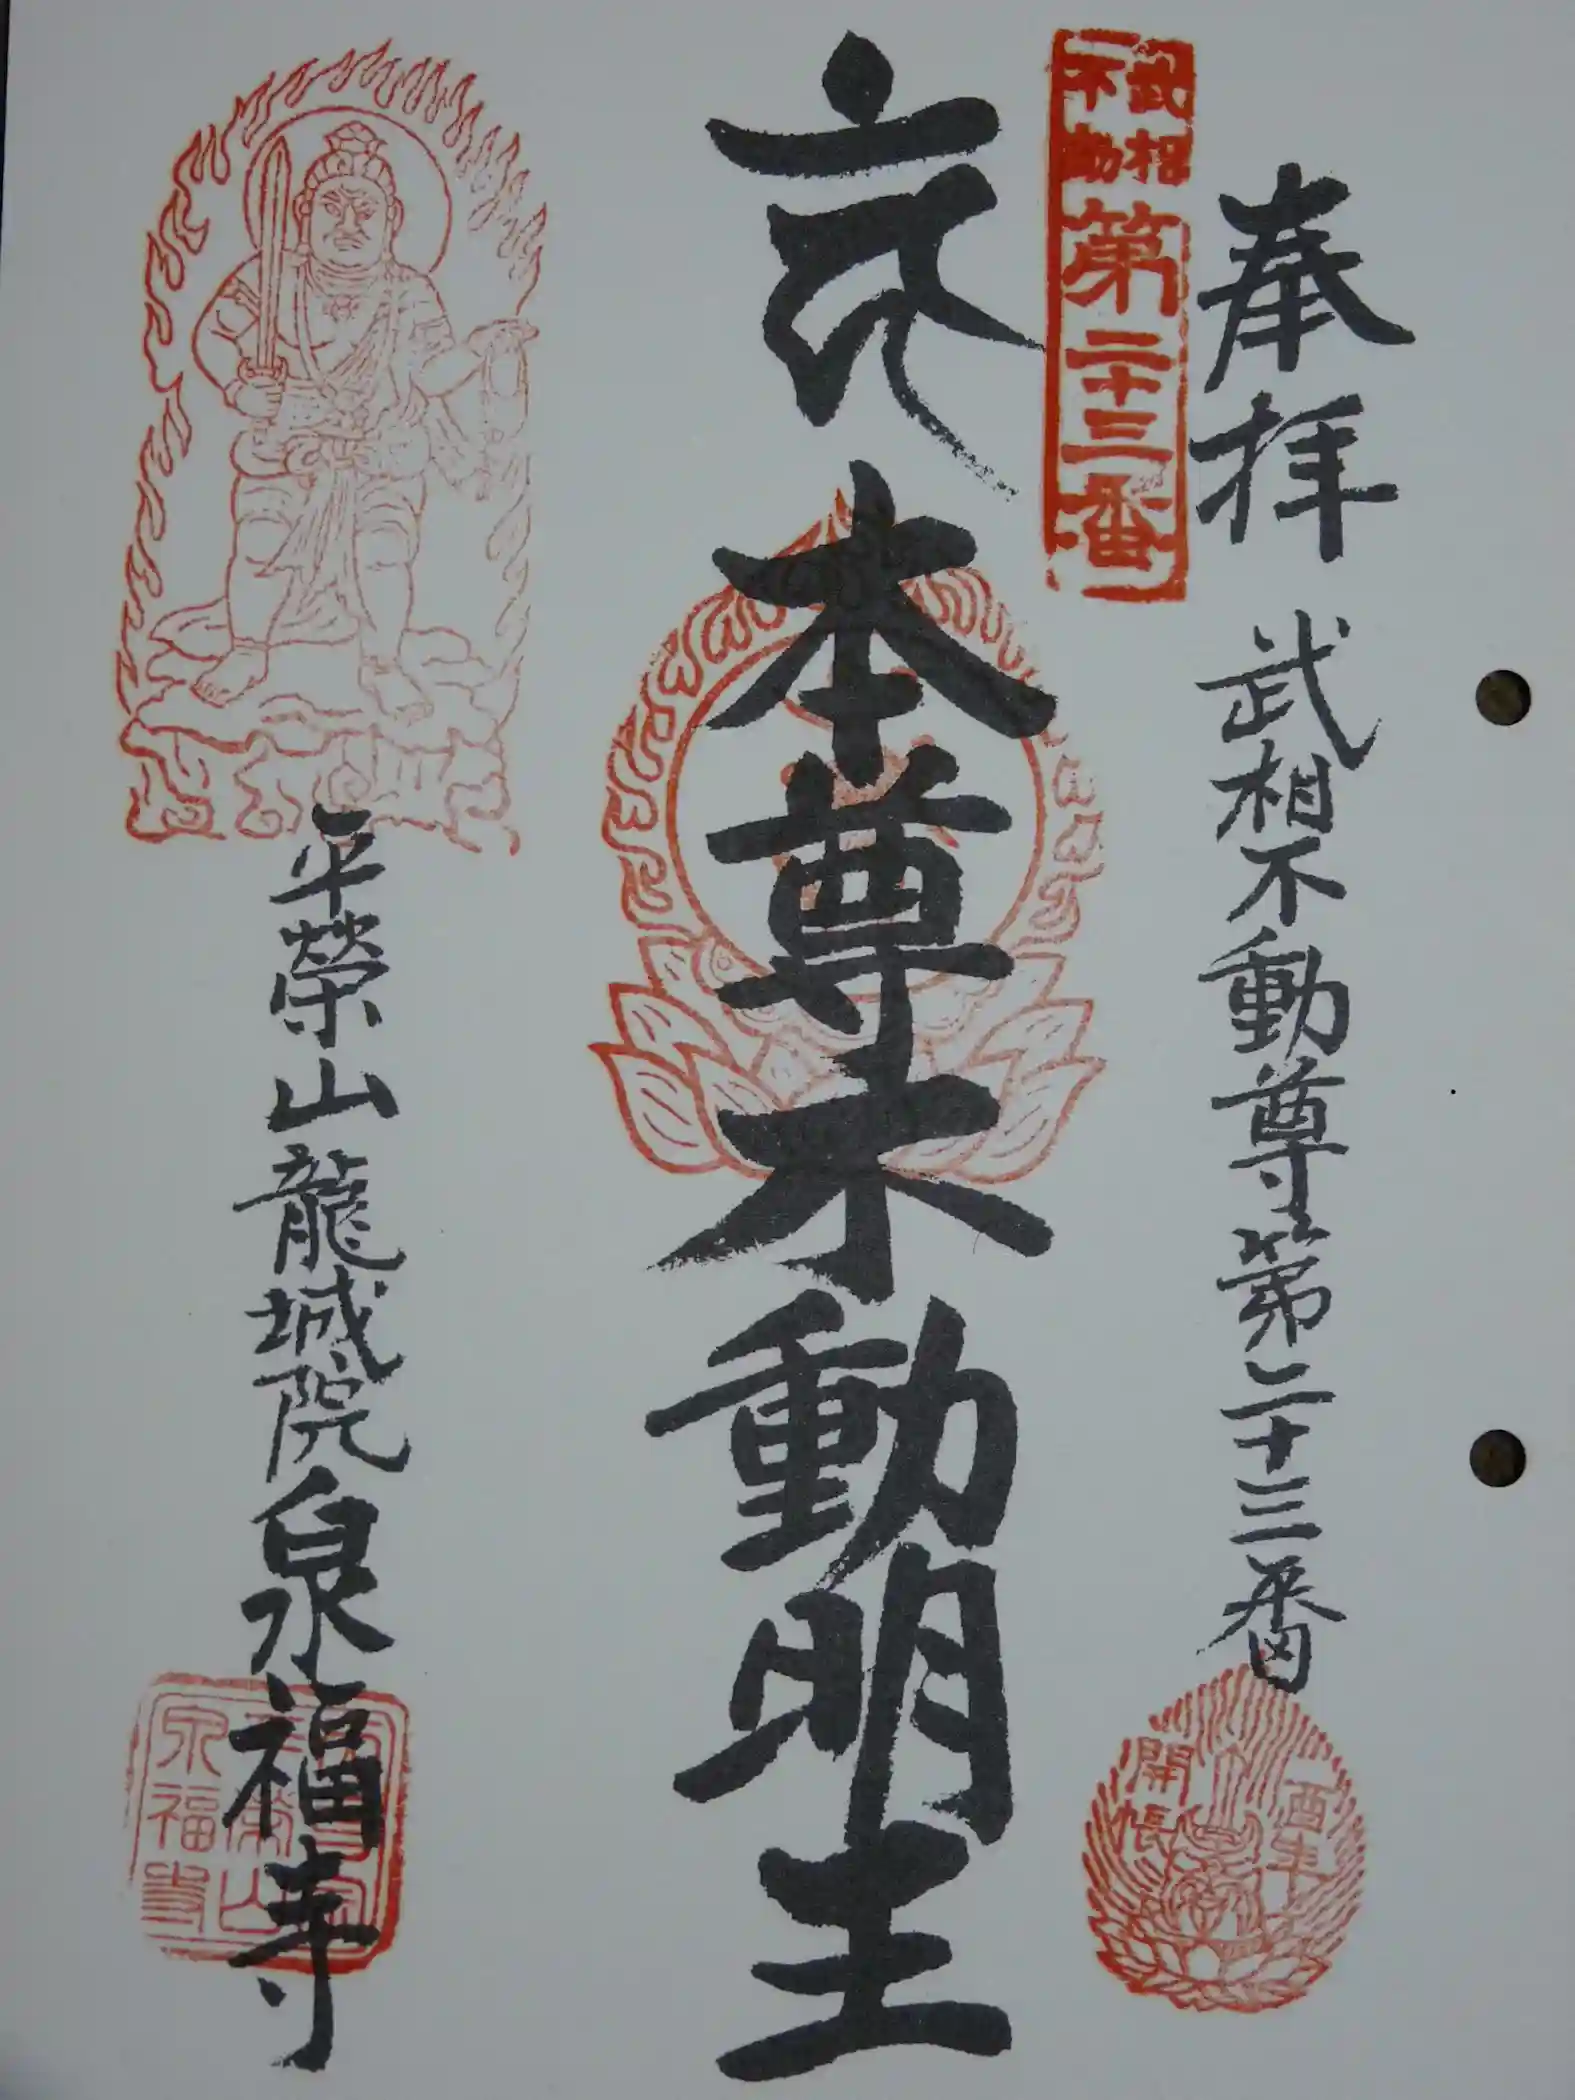 奉拝
武相不動尊第二十三番
武相
不動
第二十三番
酉年
開帳
本尊不動明王
平榮山龍城院泉福寺
泉福寺